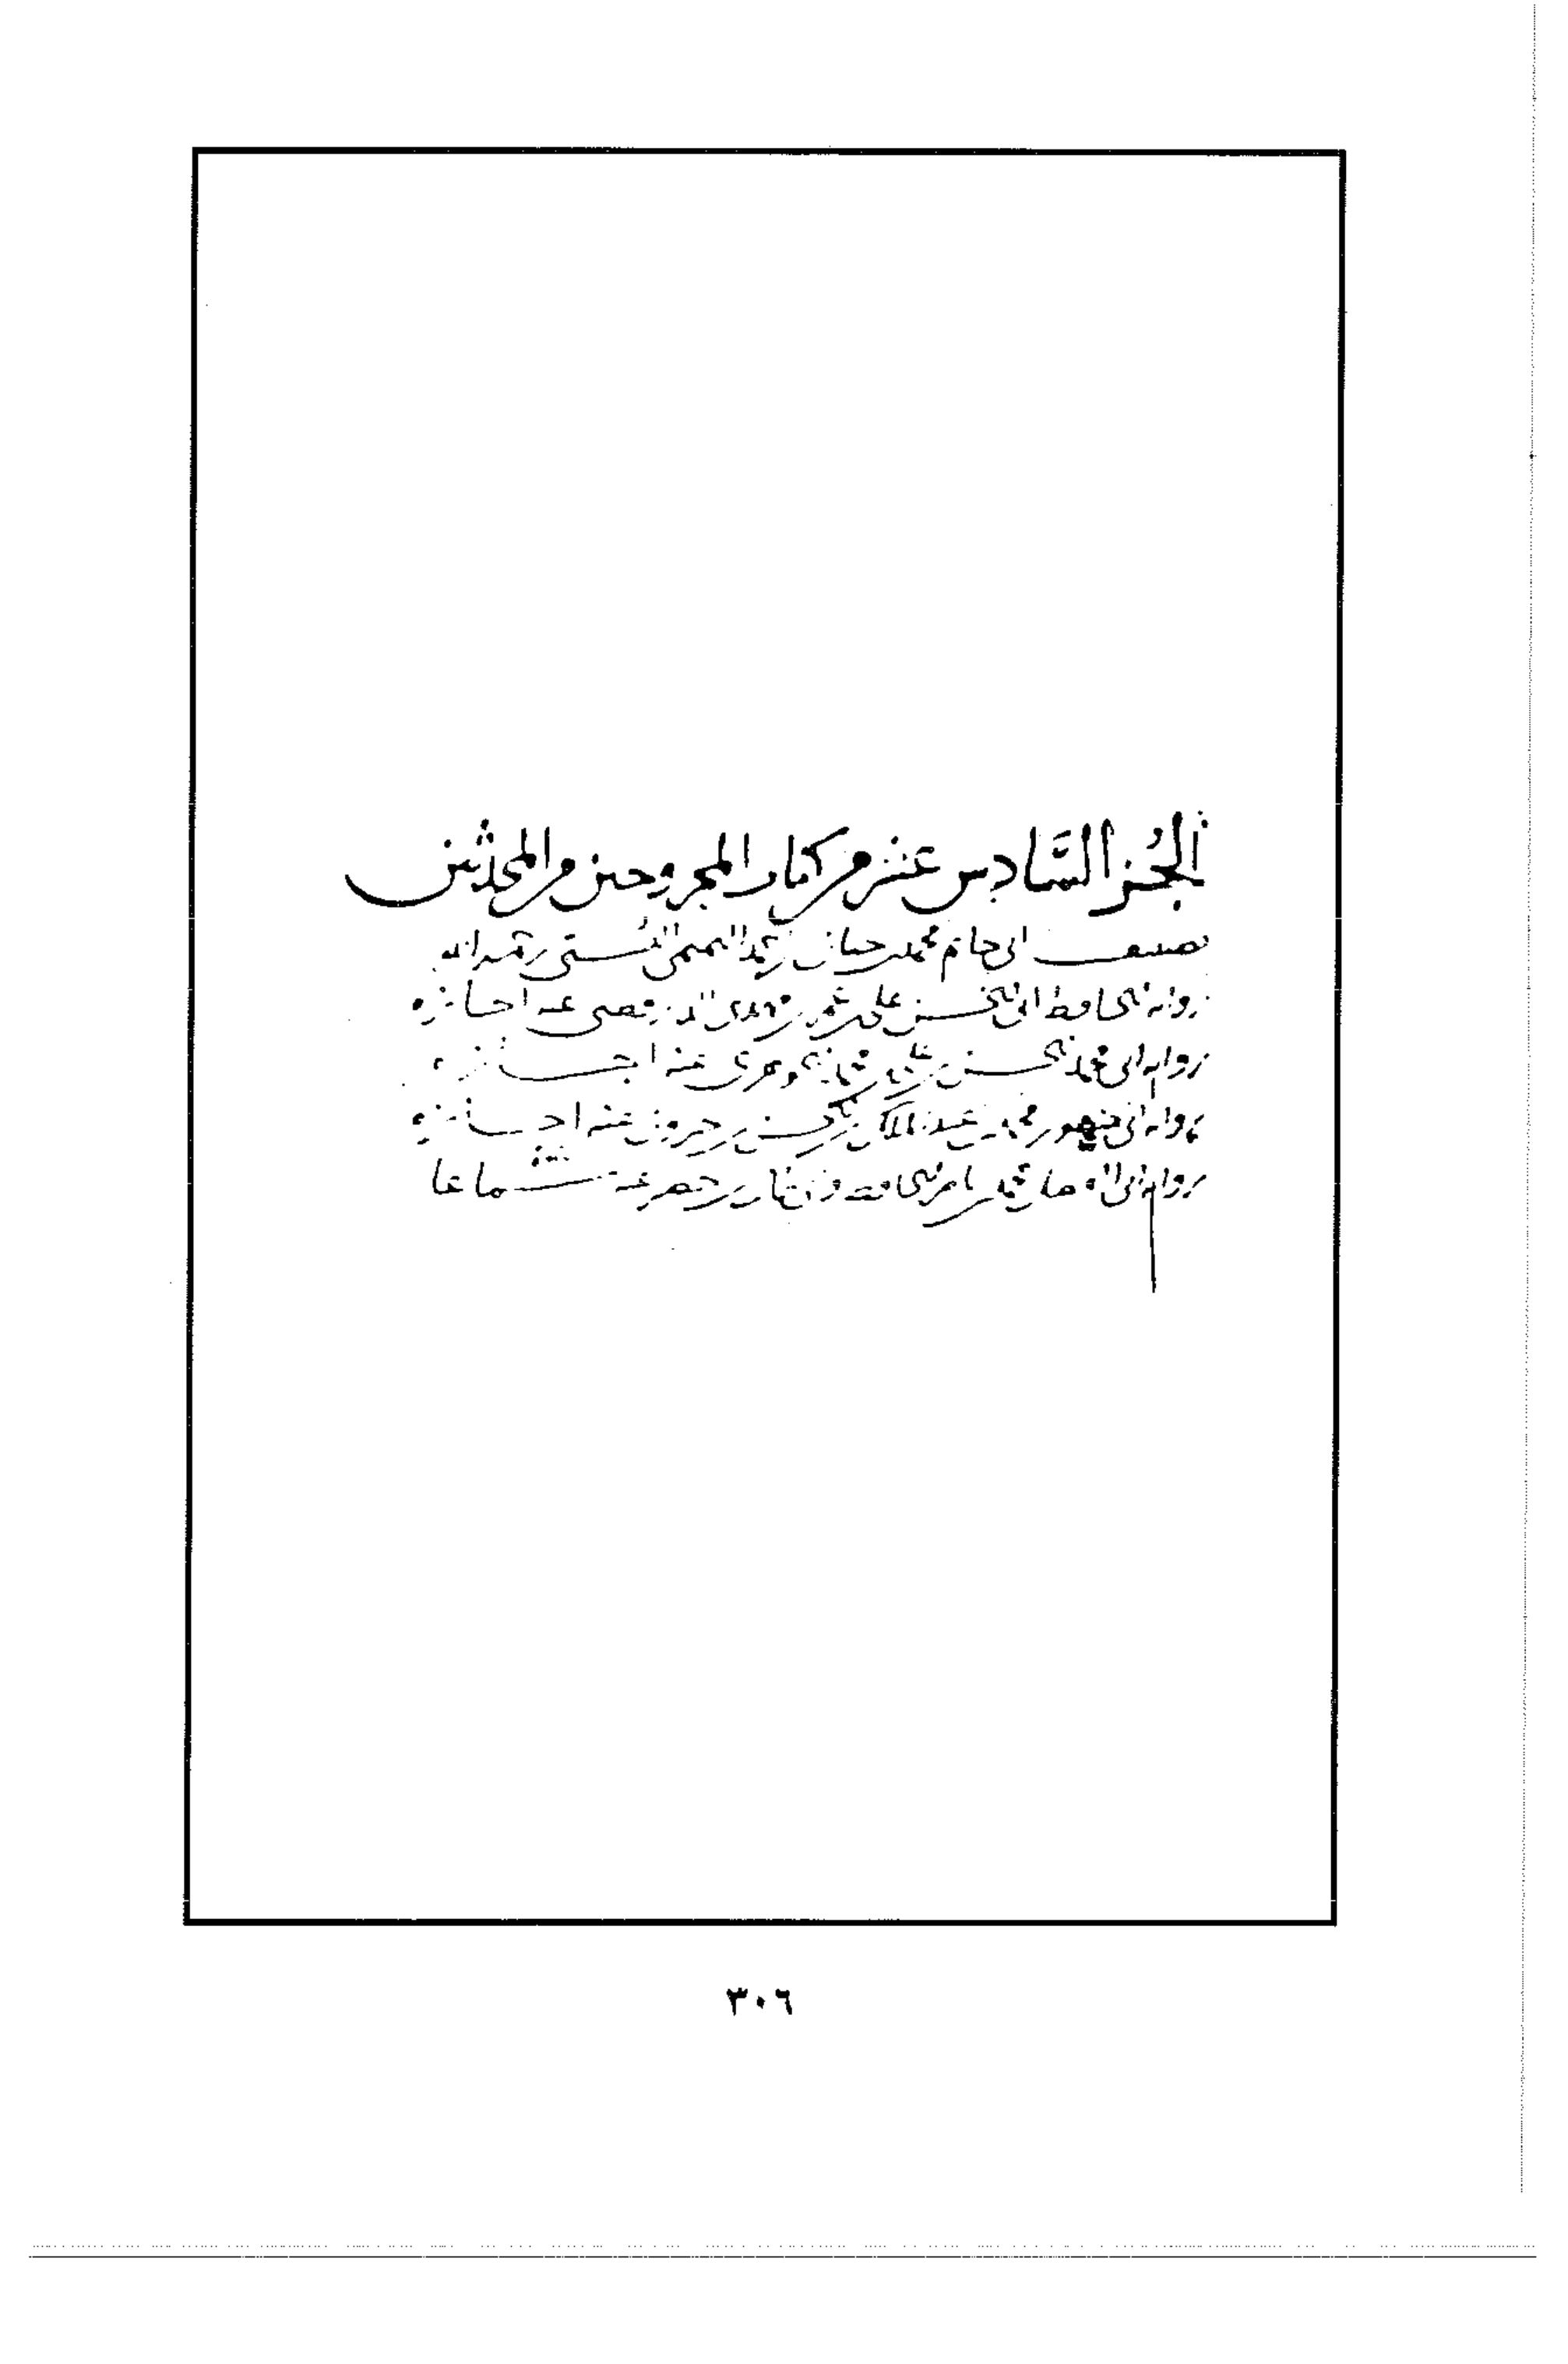 الجُزء السَّادس عشر من كتاب المجروحين من المحدثين
تصنيف ابي حاتم محمد بن حبان بن احمد التميمي البُستي رحمه الله
رواية الحافظ ابي الحسن علي بن عمر بن مهدي الدارقطني عنه اجازه
رواية ابي محمد الحسن بن علي بن محمد الجوهري عنه اجازه
رواية ابي منصور محمد بن عبد الملك بن الحسن بن خيرون عنه اجازه
رواية ابي محمد بن الحافظ عنه سماعا
٣٠٦